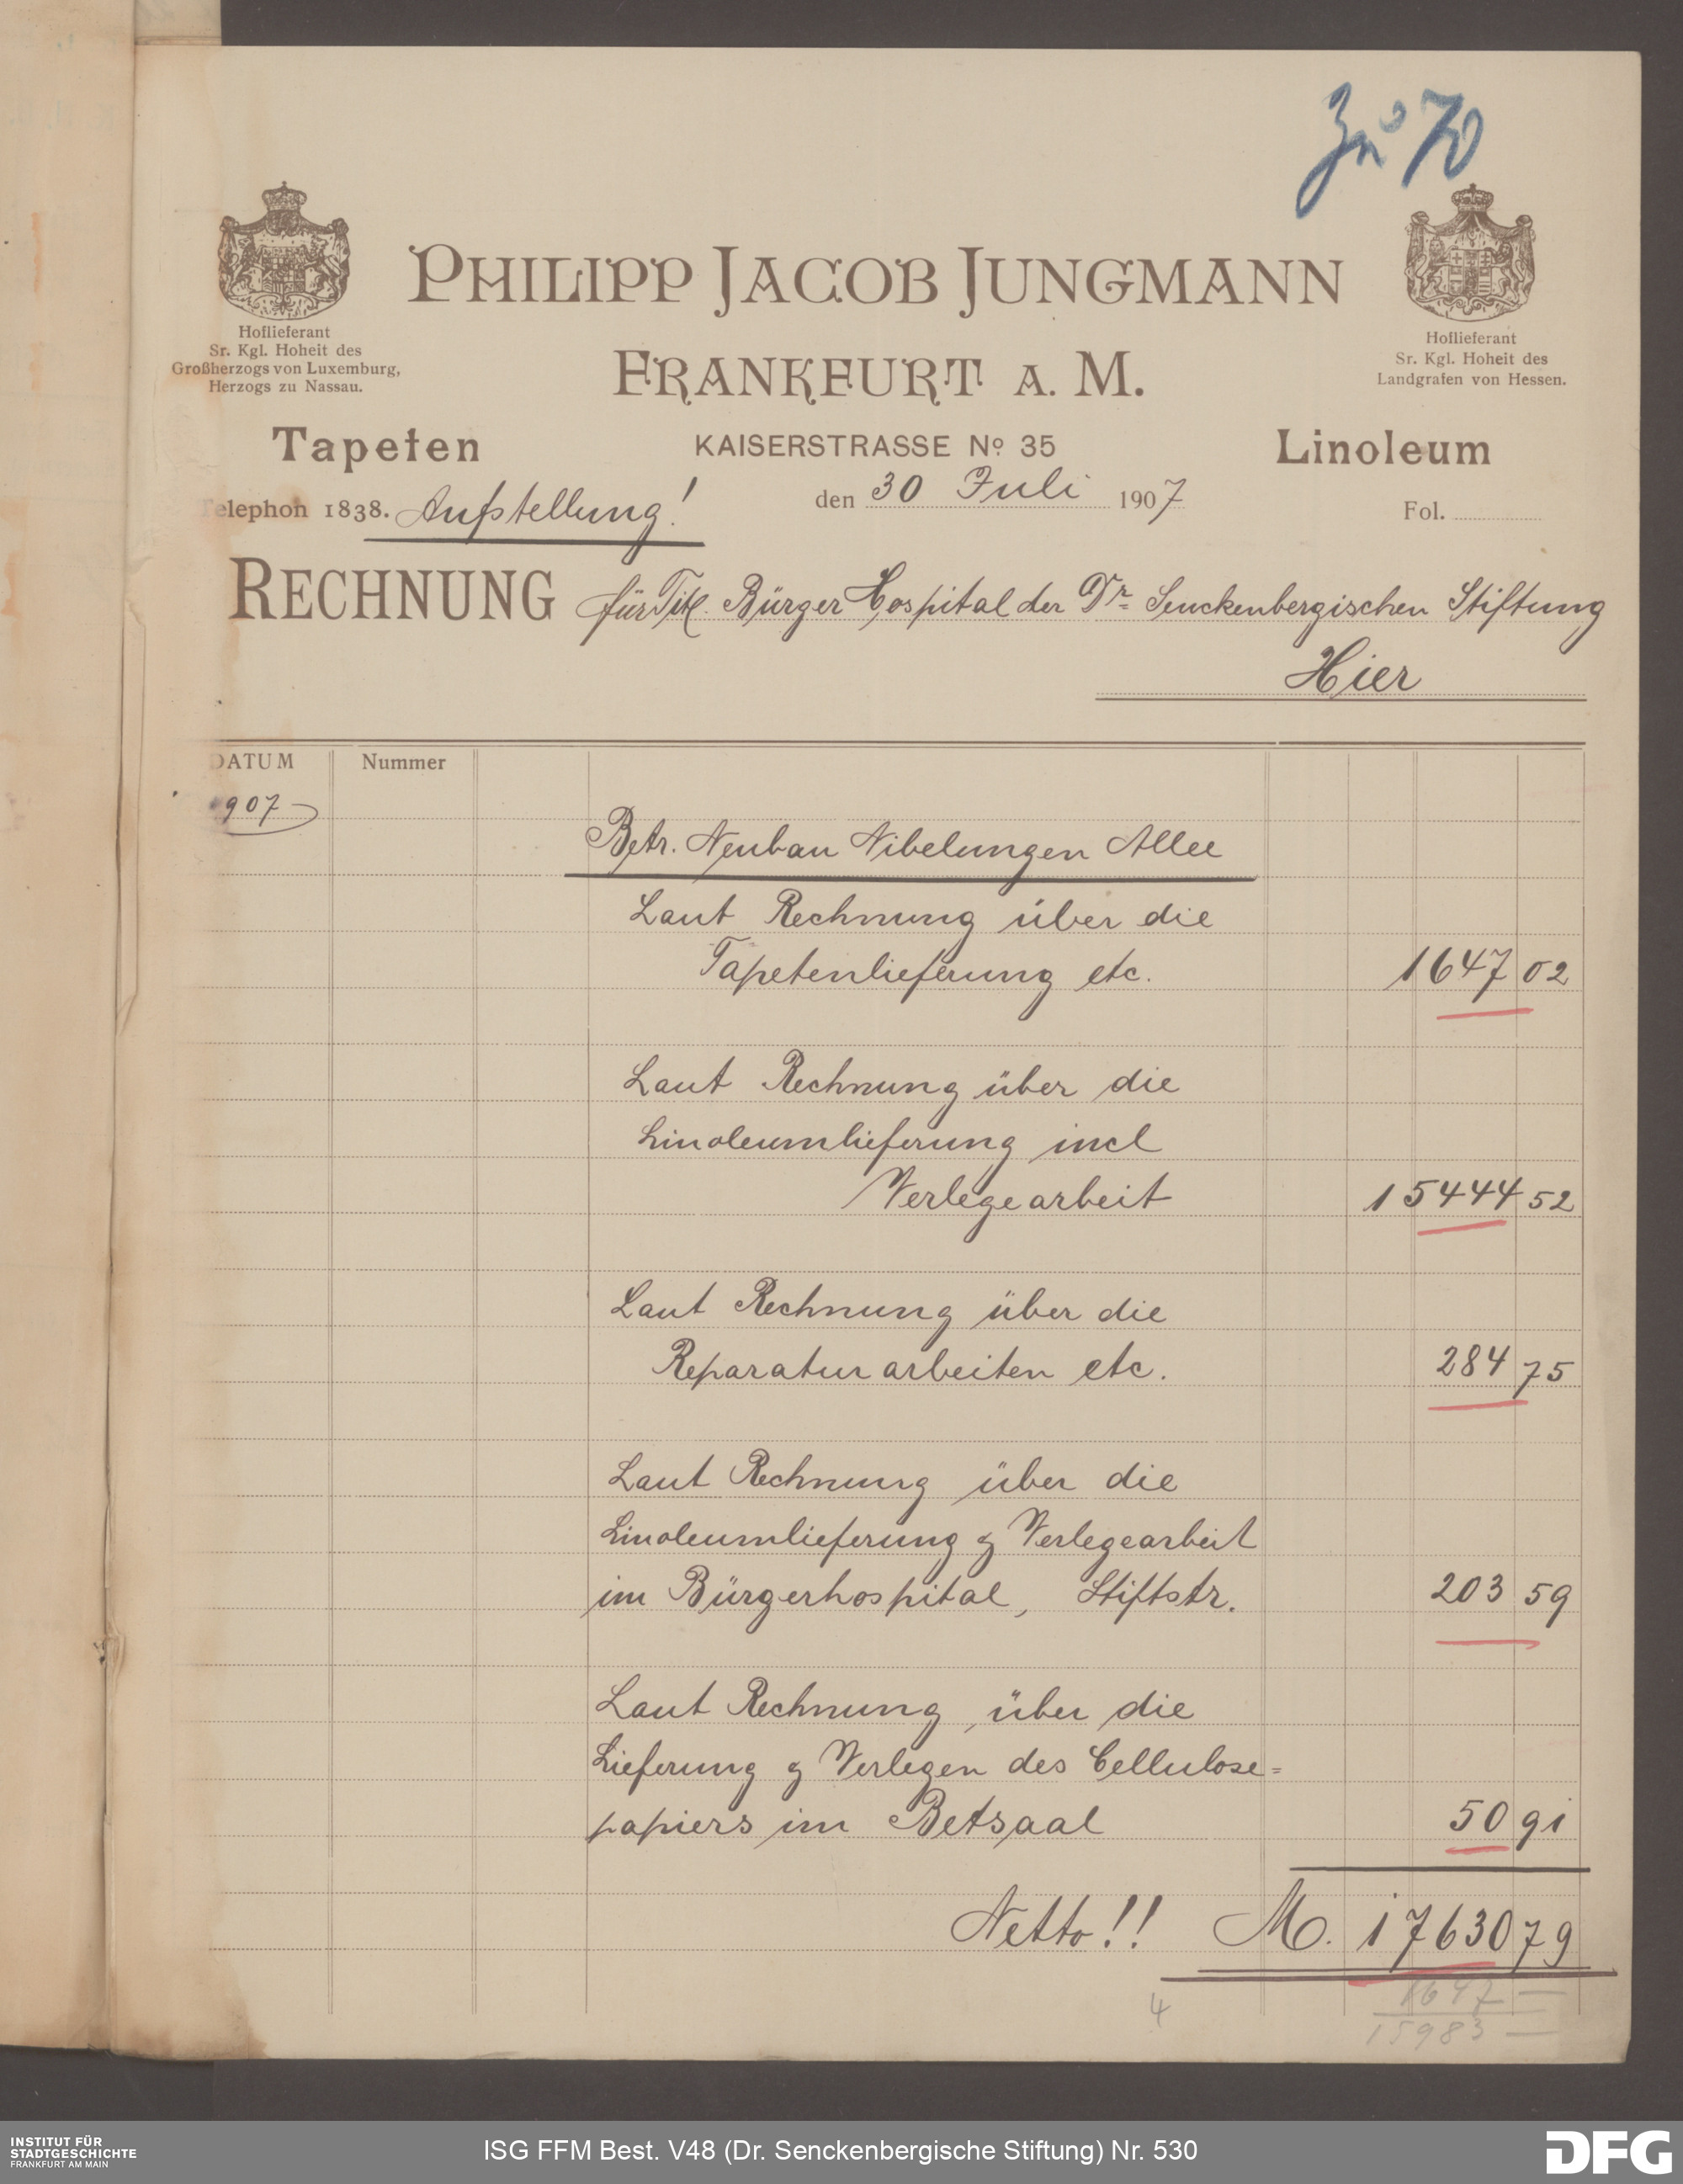 Zu 70
PHILIPP JACOB JUNGMANN
Hoflieferant
Sr. Kgl. Hoheit des
Großherzogs von Luxemburg,
Herzogs zu Nassau.
Hoflieferant
Sr. Kgl. Hoheit des
Landgrafen von Hessen.
FRANKFURT A. M.
Tapeten
KAISERSTRASSE No 35
Linoleum
Telephon 1838. Aufstellung!
den 30 Juli 1907
Fol.
RECHNUNG für Titl. Bürger Hospital der Dr. Senckenbergischen Stiftung
Hier
DATUM Nummer
907
Betr. Neubau Nibelungen Allee
Laut Rechnung über die
Tapetenlieferung etc. 1647 02
Laut Rechnung über die
Linoleumlieferung incl
Verlegearbeit 15444 52
Laut Rechnung über die
Reparaturarbeiten etc. 284 75
Laut Rechnung über die
Linoleumlieferung & Verlegearbeit
im Bürgerhospital, Stiftstr. 203 59
Laut Rechnung über die
Lieferung & Verlegen des Cellulose=
papiers im Betsaal 50 91
Netto!! M. 17630 79
1647 —
4
15983 —
INSTITUT FÜR
STADTGESCHICHTE
FRANKFURT AM MAIN
ISG FFM Best. V48 (Dr. Senckenbergische Stiftung) Nr. 530
DFG